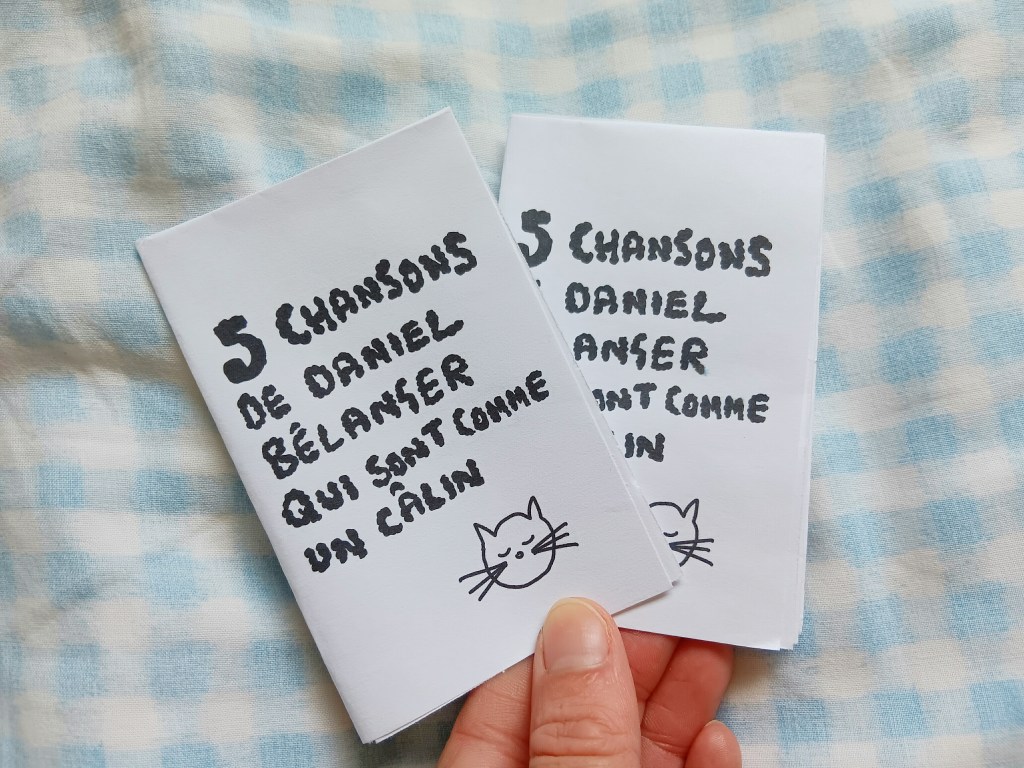 5 CHANSONS
DE DANIEL
BÉLANGER
QUI SONT COMME
UN CÂLIN
5 CHANSONS
DANIEL
ANGER
ONT COMME
IN